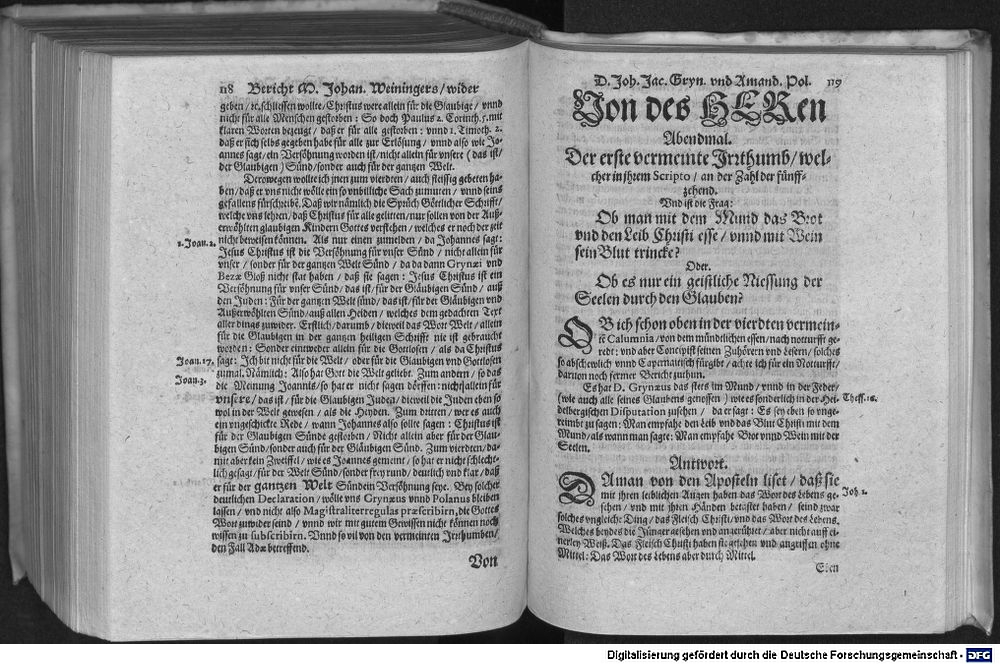 118 Bericht M. Johan. Weiningers / wider
geben / rc. schliessen wolte / Christus were allein für die Glaubige / vnnd
nicht für alle Menschen gestorben: So doch Paulus 2. Corinth. 5. mit
klaren Worten bezeugt / daß er für alle gestorben: vnnd 1. Timoth. 2.
daß er sich selbs gegeben habe für alle zur Erlösung / vnnd also wie Jo-
annes sagt / ein Versöhnung worden ist / nicht allein für vnsere (das ist /
der Glaubigen) Sünd / sonder auch für der gantzen Welt.
Derowegen wollte ich jnen zum vierdten / auch fleissig gebeten ha-
ben / daß er vns nicht wölle ein so vnbilliche Sach zumuten / vnnd seins
gefallens fürschreibē. Daß wir nämlich die Sprüch Göttlicher Schrifft /
welche vns lehren / daß Christus für alle gelitten / nur sollen von der Auß-
erwöhlten glaubigen Kindern Gottes verstehen / welches er noch der zeit
nicht beweisen können. Als nur einen zumelden / da Johannes sagt:
1. Joan. 2.
Jesus Christus ist die Versöhnung für vnser Sünd / nicht allein für
vnser / sonder für der gantzen Welt Sünd / da da dann Grynæi vnd
Bezæ Gloß nicht stat haben / daß sie sagen: Jesus Christus ist ein
Versöhnung für vnser Sünd / das ist / für der Gläubigen Sünd / auß
den Juden: Für der gantzen Welt sünd / das ist / für der Gläubigen vnd
Außerwöhlten Sünd / auß allen Heiden / welches dem gedachten Text
aller dings zuwider. Erstlich / darumb / dieweil das Wort Welt / allein
für die Glaubigen in der gantzen heiligen Schrifft nie ist gebraucht
worden: Sonder eintweder allein für die Gottlosen / als da Christus
Joan. 17.
sagt: Ich bit nicht für die Welt / oder für die Glaubigen vnd Gottlosen
zumal. Nämlich: Also hat Gott die Welt geliebt. Zum andern / so das
Joan. 3.
die Meinung Joannis / so hat er nicht sagen dörffen: nicht allein für
vnsere / das ist / für die Glaubigen Juden / dieweil die Juden eben so
wol in der Welt gewesen / als die Heyden. Zum dritten / wer es auch
ein vngeschickte Rede / wann Johannes also solte sagen: Christus ist
für der Glaubigen Sünde gestorben / Nicht allein aber für der Glau-
bigen Sünd / sonder auch für der Gläubigen Sünd. Zum vierdten / da-
mit aber kein Zweiffel / wie es Joannes gemeint / so hat er nicht schlecht-
lich gesagt / für der Welt Sünd / sonder frey rund / deutlich vnd klar / daß
er für der gantzen Welt Sünde ein Versöhnung seye. Bey solcher
deutlichen Declaration / wölle vns Grynæus vnnd Polanus bleiben
lassen / vnd nicht also Magistraliter regulas præscribirn, die Gottes
Wort zuwider seind / vnnd wir mit gutem Gewissen nicht können noch
wissen zu subscribirn. Vnnd so vil von den vermeinten Irrthumben /
den Fall Adæ betreffend.
Von
D. Joh. Jac. Gryn. vnd Amand. Pol. 119
Von des HERen
Abendmal.
Der erste vermeinte Irrthumb / wel-
cher in jhrem Scripto / an der Zahl der fünff-
zehend.
Vnd ist die Frag:
Ob man mit dem Mund das Brot
vnd den Leib Christi esse / vnnd mit Wein
sein Blut trincke?
Oder.
Ob es nur ein geistliche Niessung der
Seelen durch den Glauben?
OB ich schon oben in der vierdten vermein-
tē Calumnia / von dem mündtlichen essen / nach notturfft ge-
redt: vnd aber Concipist seinen Zuhörern vnd Lesern / solches
so abschewlich vnnd Capernaitisch fürgibt / achte ich für ein Notturfft /
darvon noch ferrner Bericht zuthun.
Es hat D. Grynæus das stets im Mund / vnnd in der Feder /
(wie auch alle seines Glaubens genossen) wie es sonderlich in der Hei-
Thess. 18.
delbergischen Disputation zusehen / da er sagt: Es sey eben so vnge-
reimbt zu sagen: Man empfahe den Leib vnd das Blut Christi mit dem
Mund / als wann man sagte: Man empfahe Brot vnnd Wein mit der
Seelen.
Antwort.
DAman von den Aposteln liset / daß sie
mit jhren leiblichen Augen haben das Wort des Lebens ge-
Joh. 1.
sehen / vnd mit jhren Händen betastet haben / seind zwar
solches vngleich: Ding / das Fleisch Christi / vnd das Wort des Lebens.
Welches beydes die Jünger gesehen vnd angerühret / aber nicht auff ei-
nerley Weiß. Das Fleisch Christi haben sie gesehen vnd angriffen ohne
Mittel: Das Wort des Lebens aber durch Mittel.
Eben
Digitalisierung gefördert durch die Deutsche Forschungsgemeinschaft - DFG